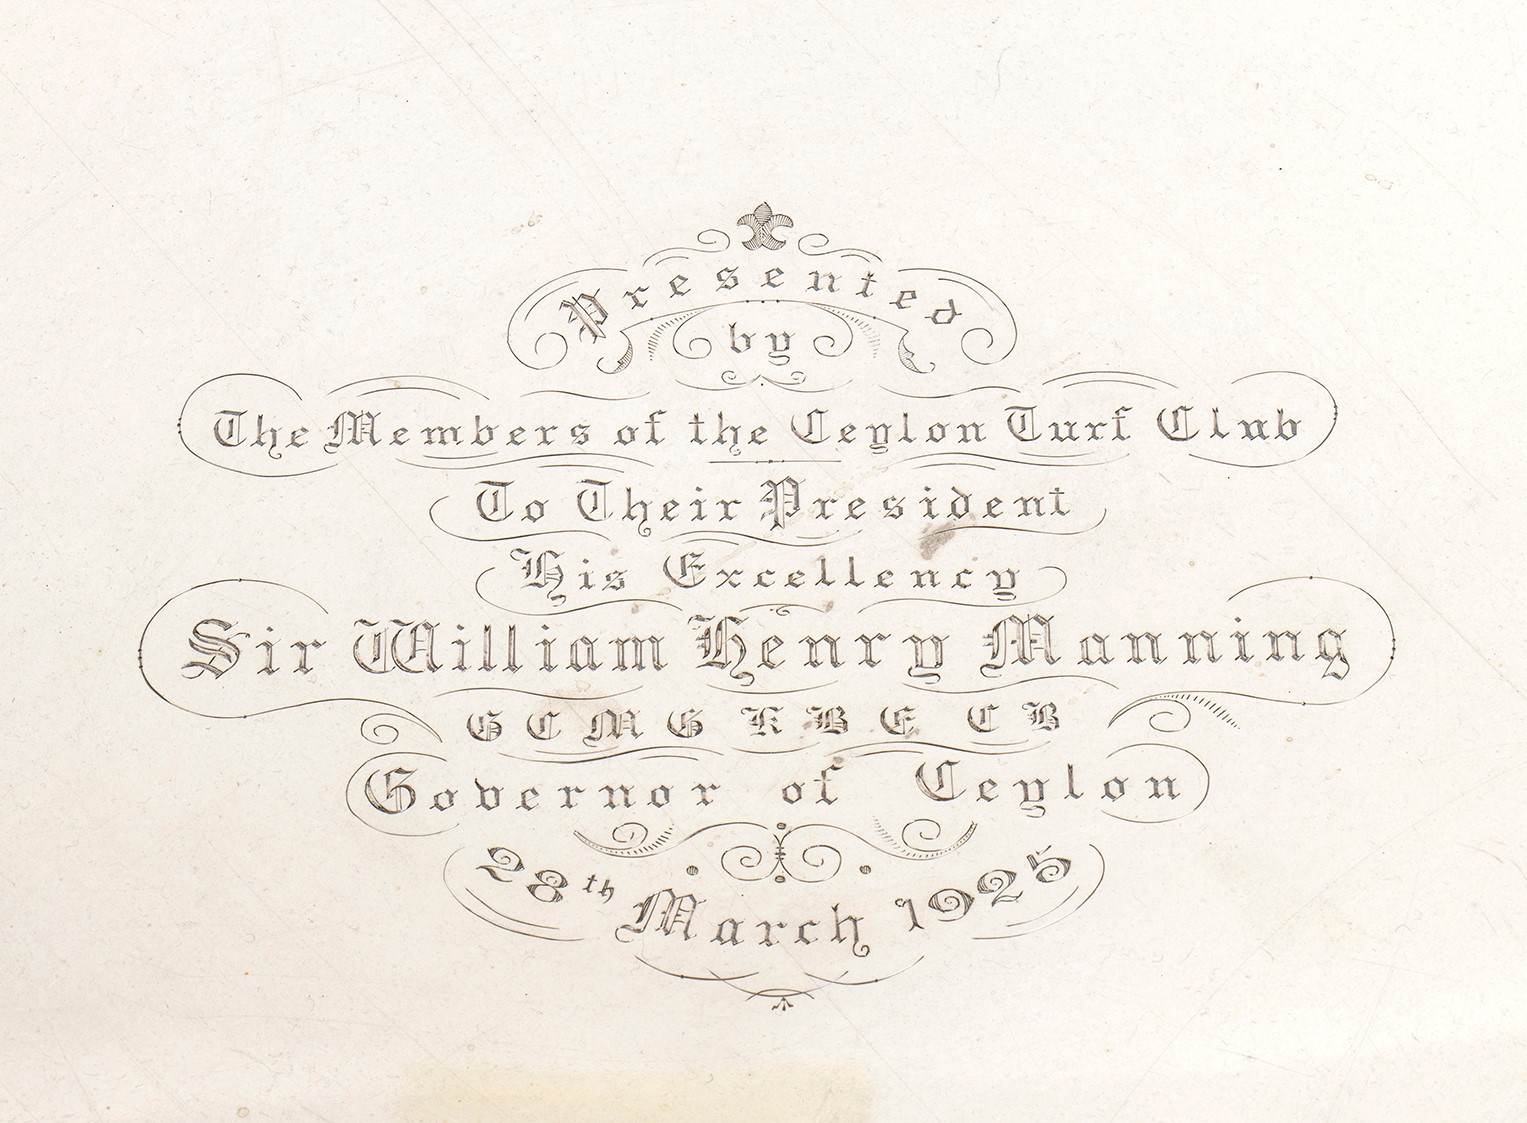 Presented
by
The Members of the Ceylon Turf Club
To Their President
His Excellency
Sir William Henry Manning
G C M G K B E C B
Governor of Ceylon
28th March 1925